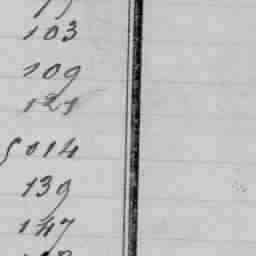 103
109
121
5014
139
147